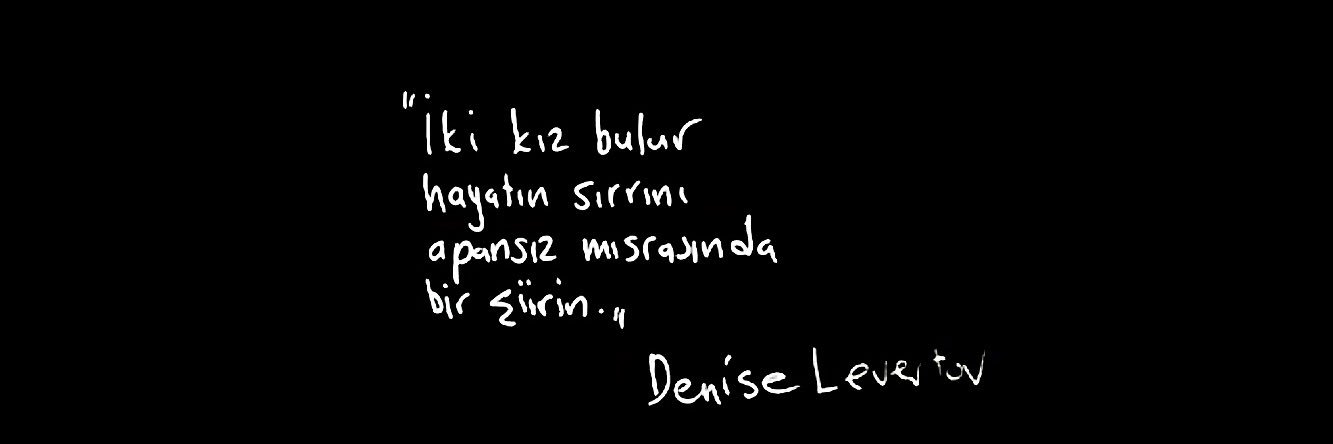 "İki kız bulur
hayatın sırrını
apansız mısrasında
bir şiirin."
Denise Levertov